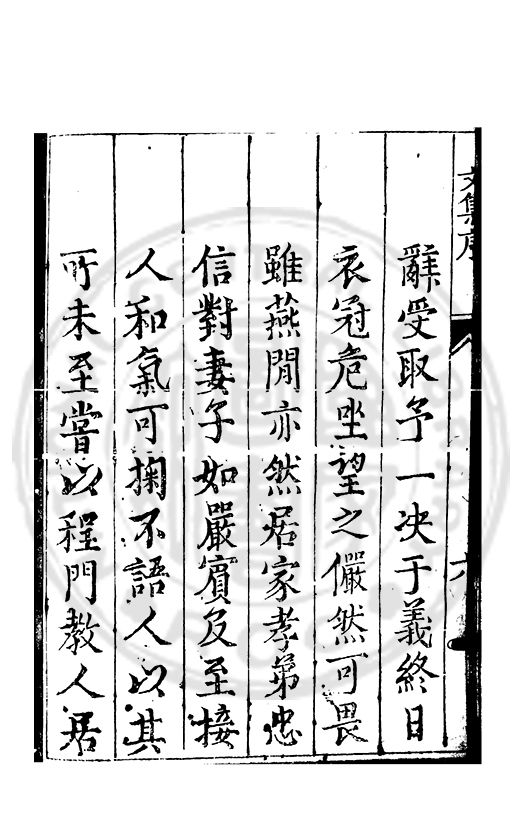 文集序
六
辭受取予一决于義終日
衣冠危坐望之儼然可畏
雖燕閒亦然居家孝弟忠
信對妻子如嚴賓及至接
人和氣可掬不語人以其
所未至嘗以程門教人居